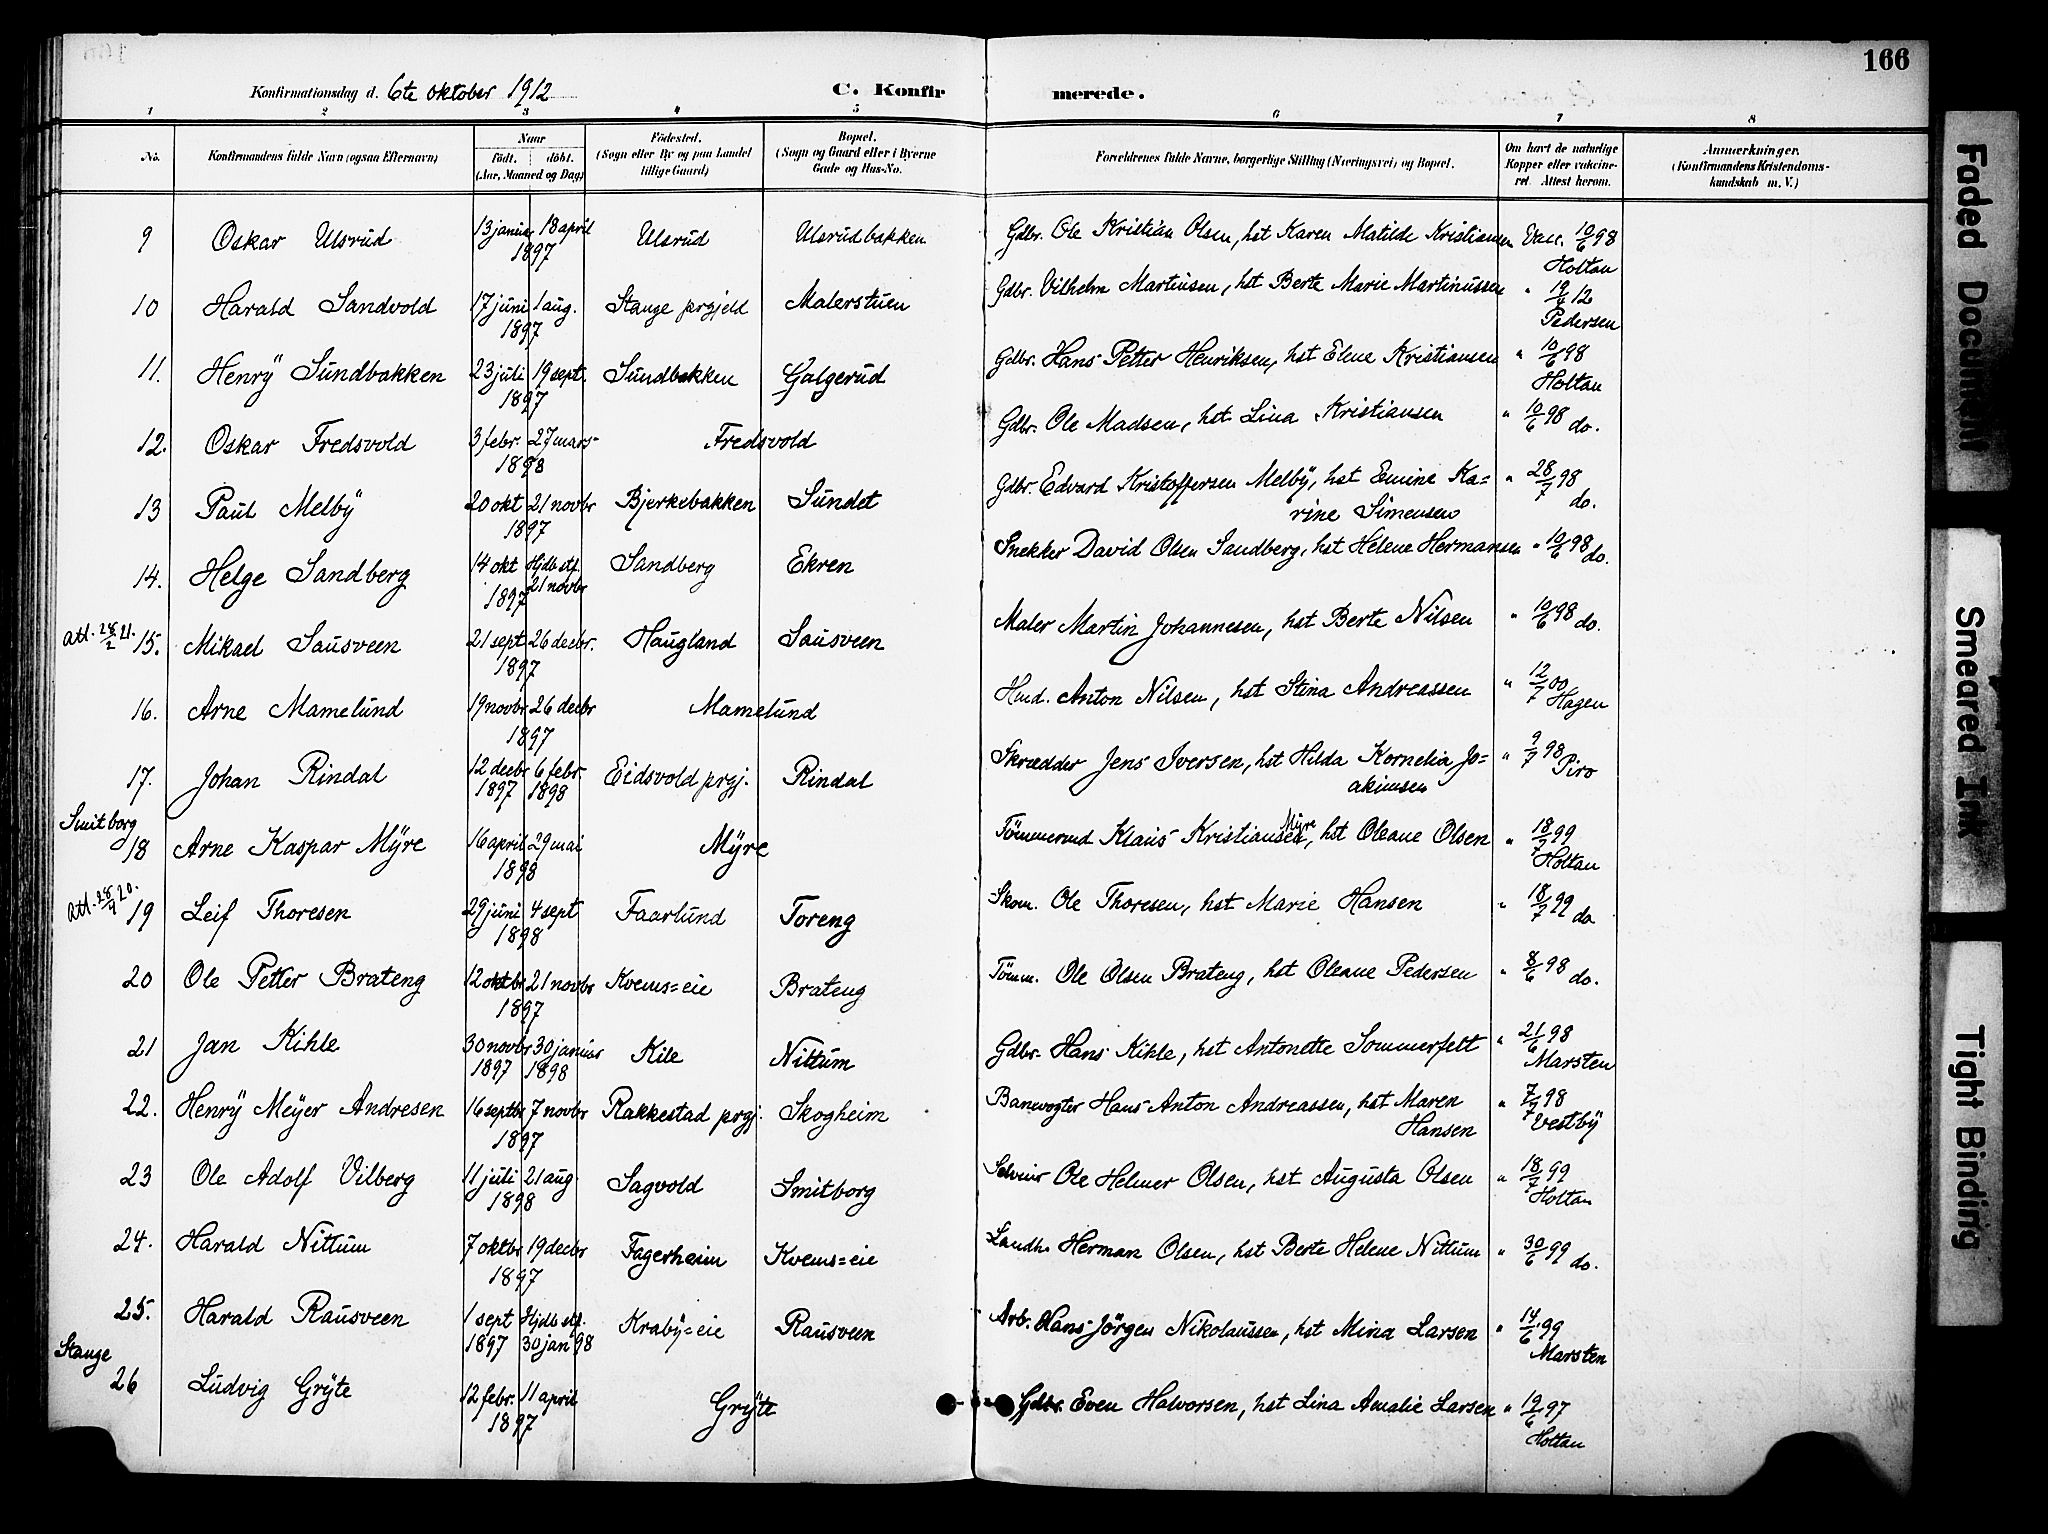 166
Konfirmationsdag d. 6te oktober 1912
C. Konfirmerede.
1 2 3 4 5 6 7 8
No.
Konfirmandens fulde Navn (ogsaa Efternavn)
Naar
født. døbt.
(Aar, Maaned og Dag)
Fødested.
(Sogn eller By og paa Landet
tillige Gaard)
Bopæl.
(Sogn og Gaard eller i Byerne
Gade og Hus-No.
Forældrenes fulde Navne, borgerlige Stilling (Næringsvei) og Bopæl.
Om havt de naturlige
Kopper eller vaccine-
ret Attest herom.
Anmærkninger.
(Konfirmandens Kristendoms-
kundskab m. V.)
9 Oskar Ulsrud 13 januar 18 april 1897 Ulsrud Ulsrudbakken Gdbr. Ole Kristian Olsen, hst Karen Matilde Kristiansen Vacc. 10/6 98 Holtan
10 Harald Sandvold 17 juni 1 aug. 1897 Stange prgjeld Malerstuen Gdbr. Vilhelm Martinsen, hst Berte Marie Martinussen " 19/6 12 Pedersen
11. Henry Sundbakken 23 juli 19 sept. 1897 Sundbakken Galgerud Gdbr. Hans Petter Henriksen, hst Elene Kristiansen " 10/6 98 Holtan
12. Oskar Fredsvold 3 febr. 27 mars 1898 Fredsvold Gdbr. Ole Madsen, hst Lina Kristiansen " 10/6 98 do.
13 Paul Melby 20 okt 21 novbr 1897 Bjerkebakken Sundet Gdbr. Edvard Kristoffersen Melby, hst Emine Ka=
rine Simensen " 28/7 98 do.
14. Helge Sandberg 14 okt Hjdbstf. 21 novbr 1897 Sandberg Ekren Snekker David Olsen Sandberg, hst Helene Hermansen " 10/6 98 do.
att. 28/2 21. 15. Mikael Sausveen 21 sept 26 decbr. 1897 Haugland Sausveen Maler Martin Johannesen, hst Berte Nilsen " 10/6 98 do.
16. Arne Mamelund 19 novbr 26 decbr 1897 Mamelund Hmd. Anton Nilsen, hst Stina Andreassen " 12/7 00 Hagen
17. Johan Rindal 12 decbr 1897 6 febr. 1898 Eidsvold prgj. Rindal Skrædder Jens Iversen, hst Hilda Kornelia Jo=
akimsen " 9/7 98 Piro
Smitborg
18 Arne Kaspar Myre 16 april 29 mai 1898 Myre Tømmermd Klaus Kristiansen Myre, hst Oleane Olsen " 18/7 99 Holtan
att. 28/9 20. 19 Leif Thoresen 29 juni 4 sept 1898 Faarlund Toreng Skom. Ole Thoresen, hst Marie Hansen " 18/7 99 do
20 Ole Petter Brateng 12 oktbr 21 novbr 1897 Kvems=eie Brateng Tømm. Ole Olsen Brateng, hst Oleane Pedersen " 8/6 98 do.
21 Jan Kihle 30 novbr 1897 30 januar 1898 Kile Nittum Gdbr. Hans Kihle, hst Antonette Sommerfelt " 21/6 98 Marsten
22. Henry Meyer Andresen 16 septbr 7 novbr 1897 Rakkestad prgj. Skogheim Banevogter Hans Anton Andreassen, hst Maren
Hansen " 7/7 98 Vestby
23 Ole Adolf Vilberg 11 juli 21 aug. 1898 Sagvold Smitborg Selveier Ole Helmer Olsen, hst Augusta Olsen " 18/7 99 Holtan
24. Harald Nittum 7 oktbr 19 decbr 1897 Fagerheim Kvems=eie Landh. Herman Olsen, hst Berte Helene Nittum " 30/6 99 do.
25. Harald Rausveen 1 sept 1897 Hjdbstf. 30 jan 98 Kraby=eie Rausveen Arb. Hans Jörgen Nikolaussen, hst Mina Larsen " 14/6 99 Marsten
Stange
26 Ludvig Gryte 12 febr. 11 april 1897 Gryte Gdbr. Even Halvorsen, hst Lina Amalie Larsen " 19/6 97 Holtan
Faded Document
Smeared Ink
Tight Binding